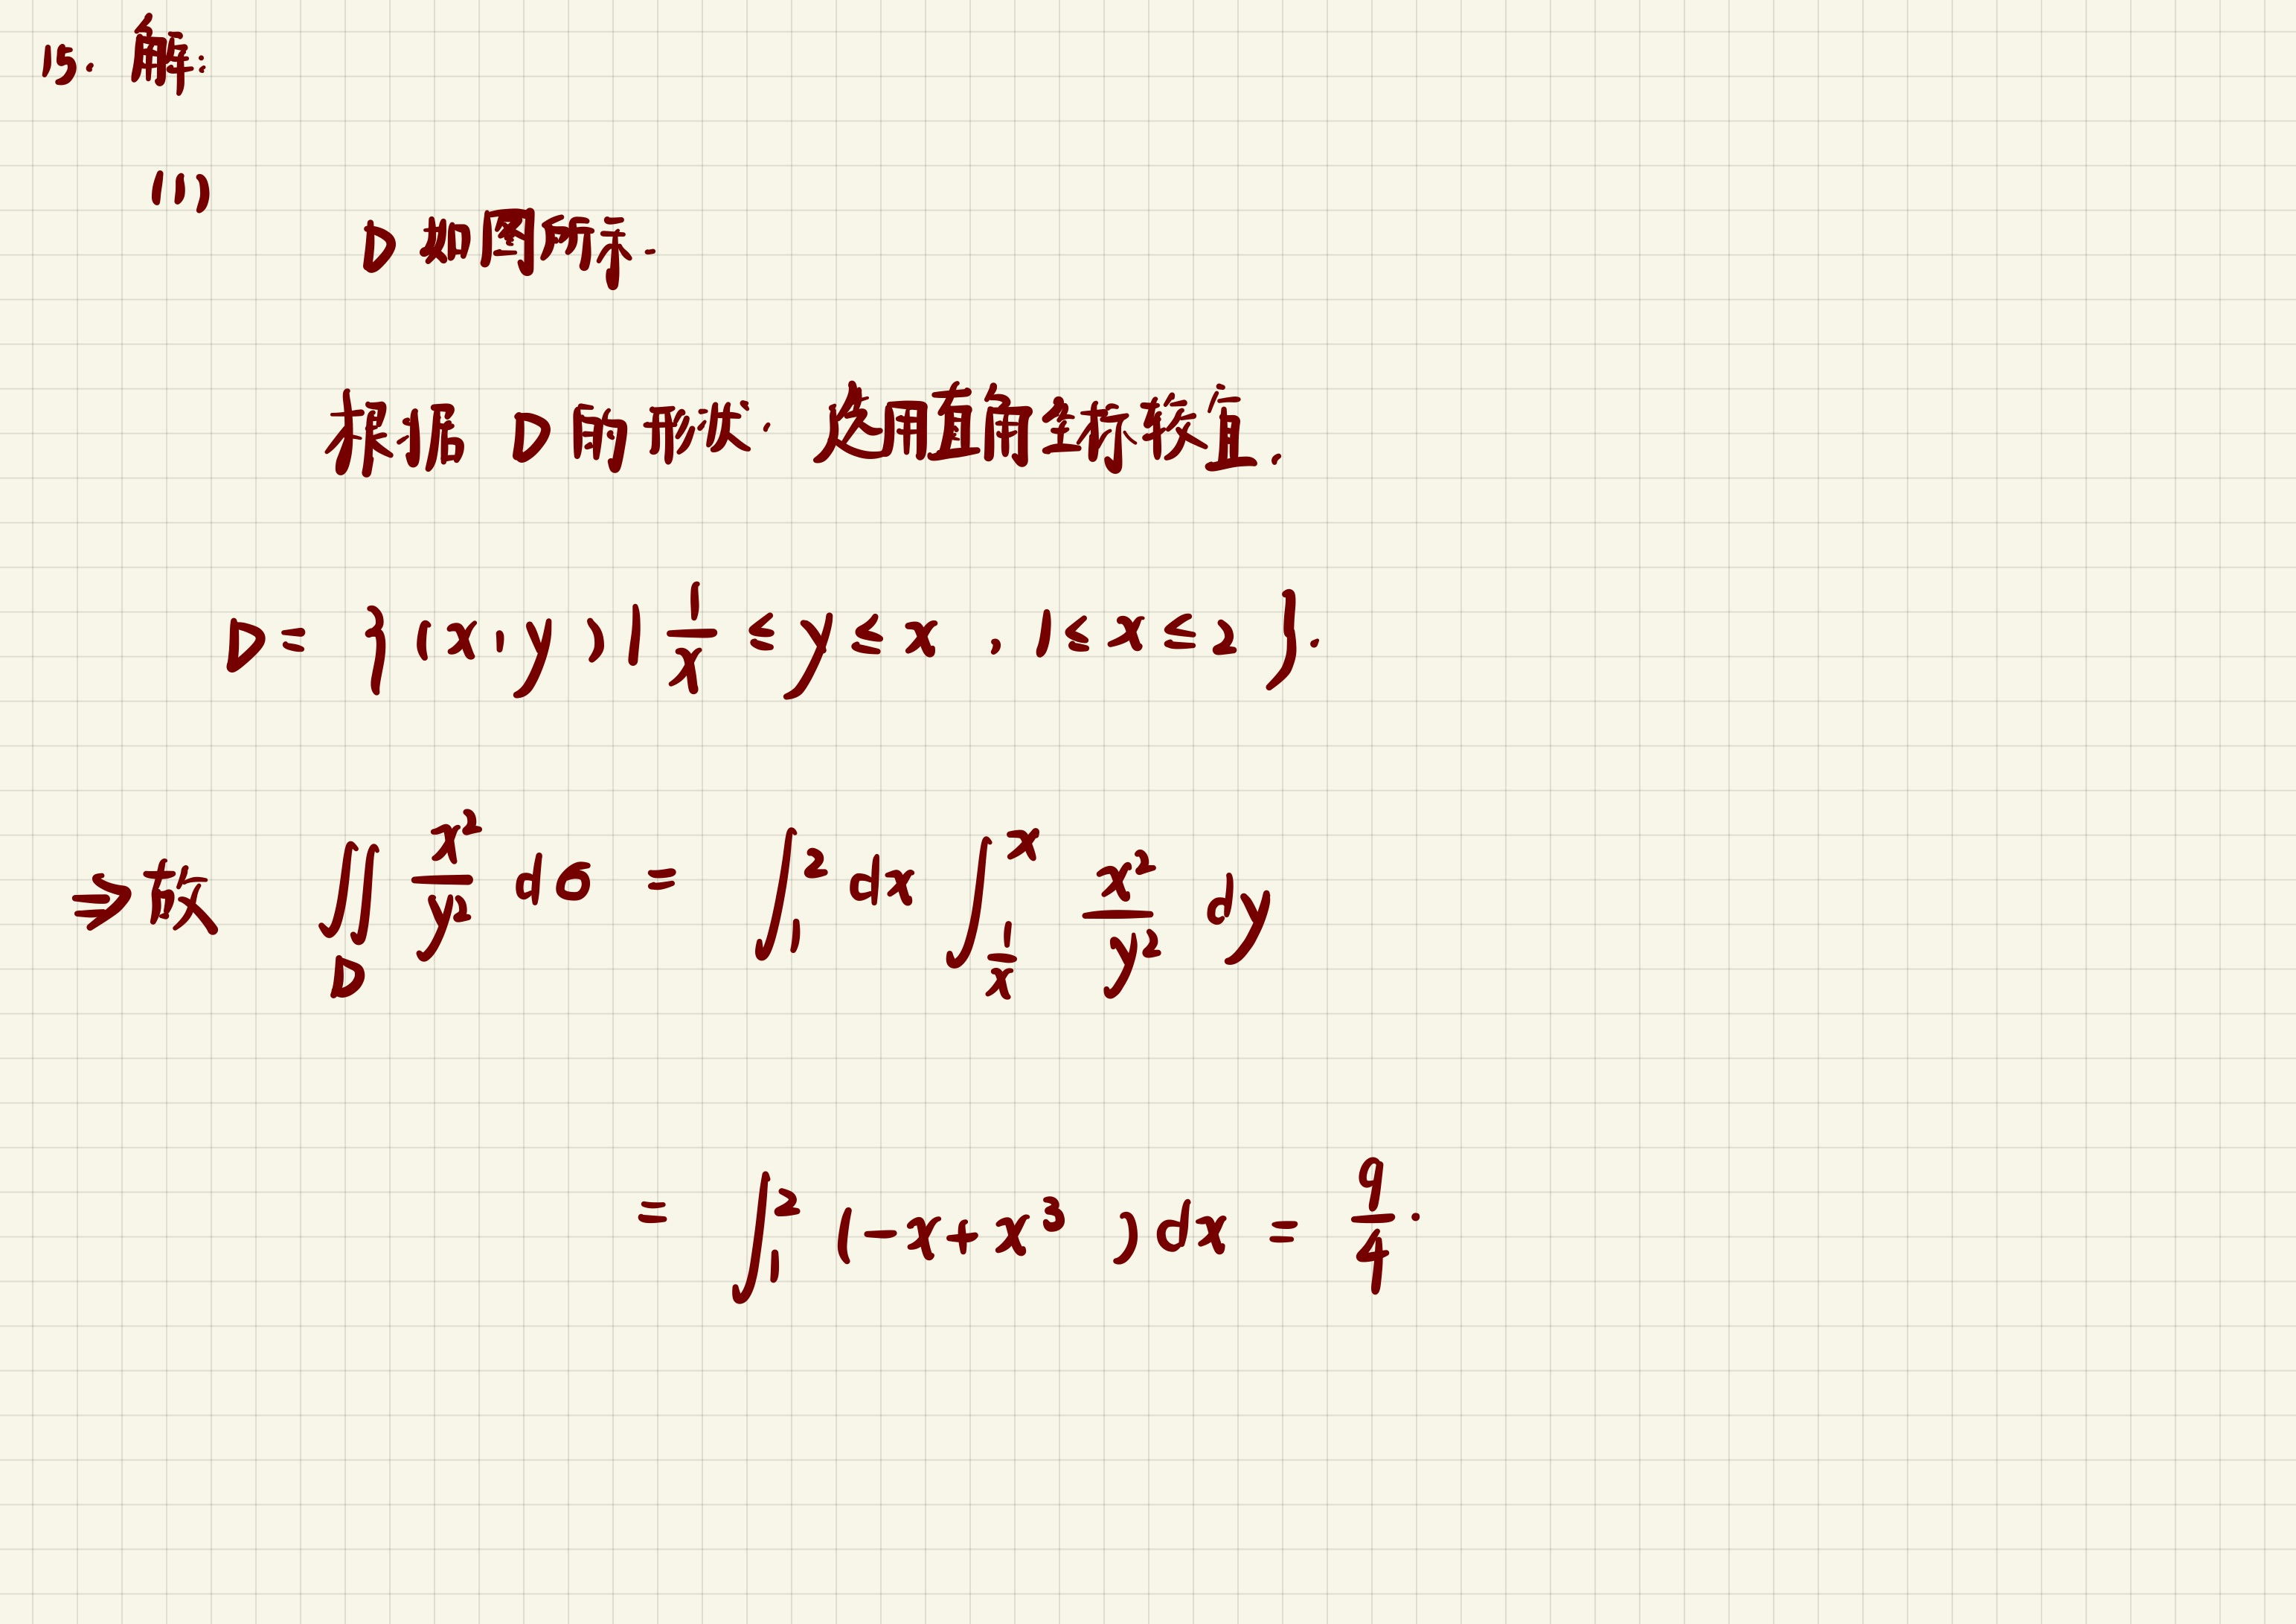 15. 解:
(1)
D 如图所示.
根据 D 的形状. 选用直角坐标较宜.
D = {(x,y) | 1/x ≤ y ≤ x , 1 ≤ x ≤ 2}.
⇒ 故 ∬_D x²/y² dσ = ∫₁² dx ∫_{1/x}^{x} x²/y² dy
= ∫₁² (-x + x³) dx = 9/4.